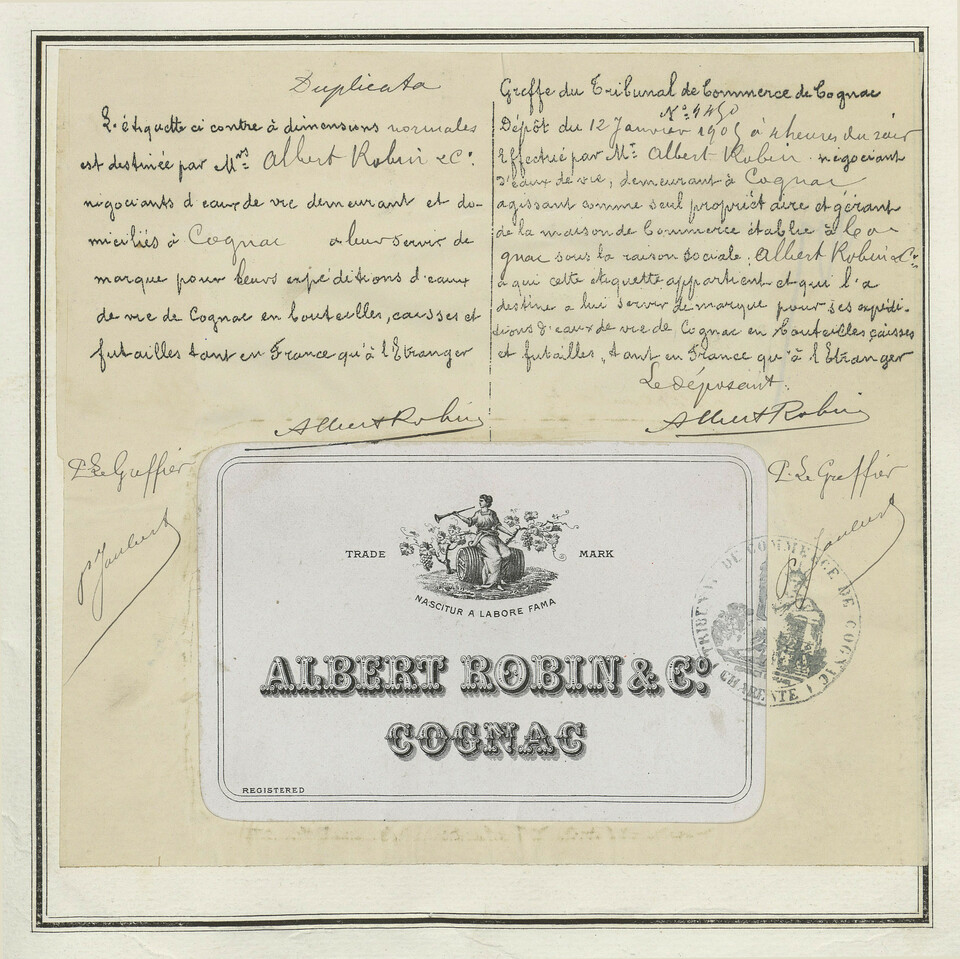 Duplicata
L'étiquette ci contre à dimensions normales
est destinée par Mrs Albert Robin & Co.
négociants d'eaux de vie demeurant et do-
miciliés à Cognac a leur servir de
marque pour leurs expéditions d'eaux
de vie de Cognac en bouteilles, caisses et
futailles tant en France qu'à l'Etranger
Albert Robin
P. Le Greffier
Greffe du Tribunal de Commerce de Cognac
No 4450
Dépôt du 12 Janvier 1905 à 4 heures du soir
Effectué par Mr Albert Robin négociant
d'eaux de vie, demeurant à Cognac
agissant comme seul propriétaire et gérant
de la maison de Commerce établie à Co-
gnac sous la raison sociale: Albert Robin & Co.
a qui cette étiquette appartient et qui l'a
destine a lui servir de marque pour ses expédi-
tions d'eaux de vie de Cognac en bouteilles caisses
et futailles, tant en France qu'à l'Etranger
Le déposant:
Albert Robin
P. Le Greffier
TRADE MARK
NASCITUR A LABORE FAMA
ALBERT ROBIN & Co.
COGNAC
REGISTERED
TRIBUNAL DE COMMERCE DE COGNAC
CHARENTE